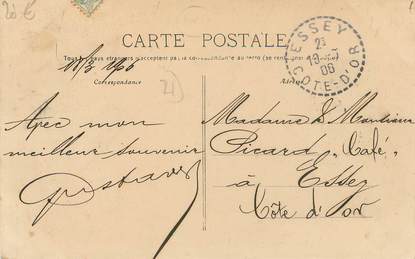 20 €
CARTE POSTALE
Tous les pays étrangers n'acceptent pas la correspondance au recto (se renseigner
Correspondance
ESSEY
21
19 -5
06
COTE-D'OR
21
Avec mon
meilleur souvenir
Madame & Monsieur
Picard "Café"
à Essey
Côte d'Or